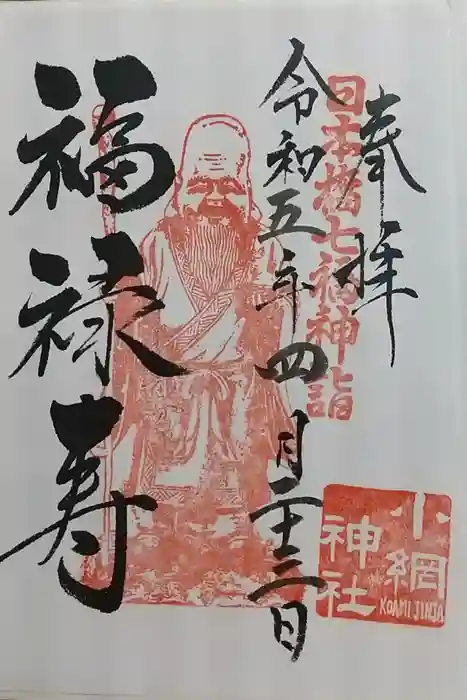 奉拝
日本橋七福神詣
令和五年四月二十三日
福禄寿
小網
神社
KOAMI JINJA